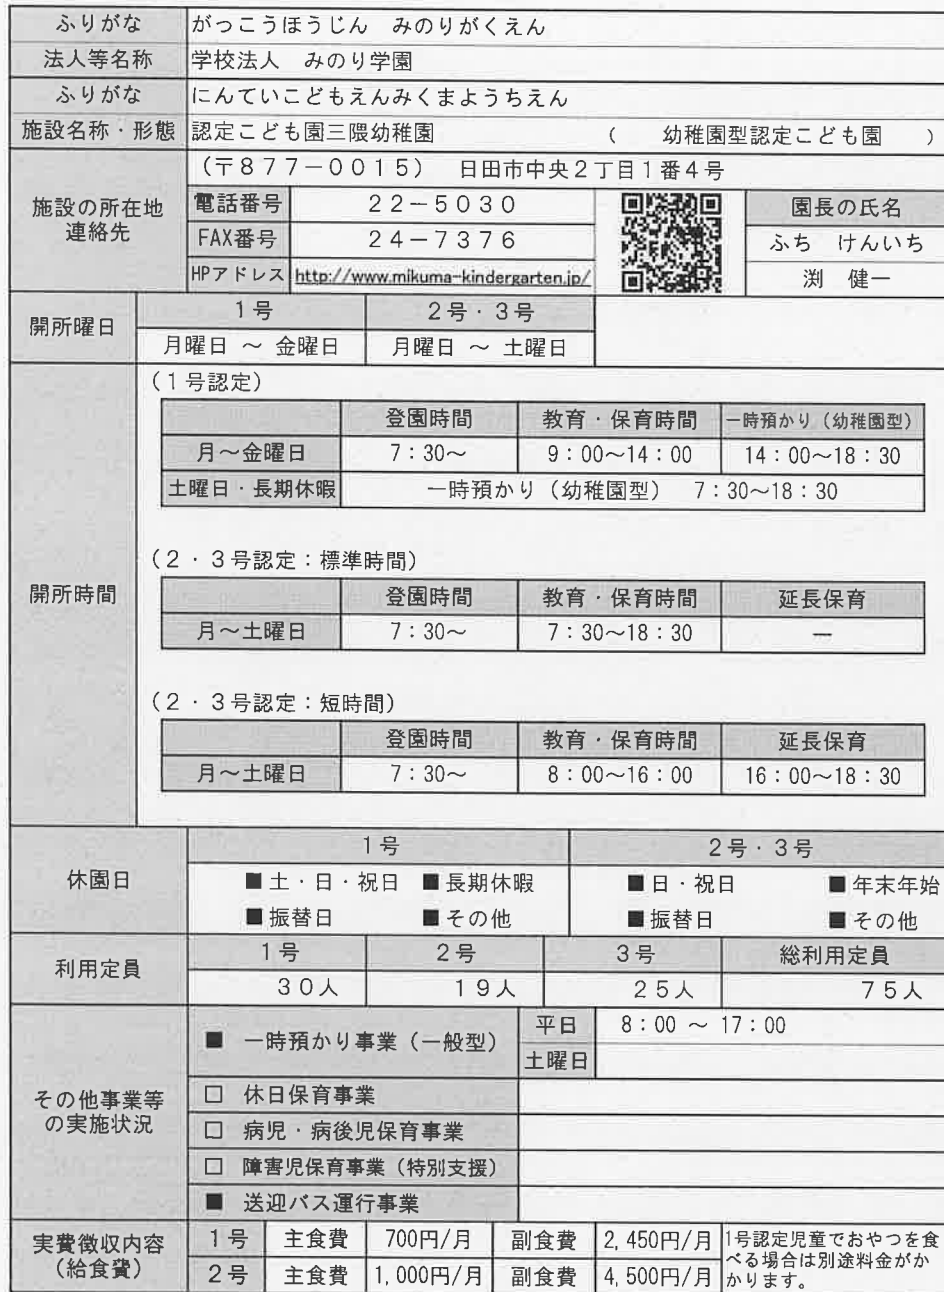 ふりがな がっこうほうじん みのりがくえん
法人等名称 学校法人 みのり学園
ふりがな にんていこどもえんみくまようちえん
施設名称・形態 認定こども園三隈幼稚園 ( 幼稚園型認定こども園 )
施設の所在地
連絡先
(〒877-0015) 日田市中央2丁目1番4号
電話番号 22-5030 園長の氏名
FAX番号 24-7376 ふち けんいち
HPアドレス http://www.mikuma-kindergarten.jp/ 渕 健一
開所曜日
1号 2号・3号
月曜日 ~ 金曜日 月曜日 ~ 土曜日
開所時間
(1号認定)
登園時間 教育・保育時間 一時預かり(幼稚園型)
月~金曜日 7:30~ 9:00~14:00 14:00~18:30
土曜日・長期休暇 一時預かり(幼稚園型) 7:30~18:30
(2・3号認定:標準時間)
登園時間 教育・保育時間 延長保育
月~土曜日 7:30~ 7:30~18:30 ―
(2・3号認定:短時間)
登園時間 教育・保育時間 延長保育
月~土曜日 7:30~ 8:00~16:00 16:00~18:30
休園日
1号 2号・3号
■土・日・祝日 ■長期休暇 ■日・祝日 ■年末年始
■振替日 ■その他 ■振替日 ■その他
利用定員
1号 2号 3号 総利用定員
30人 19人 25人 75人
その他事業等
の実施状況
■ 一時預かり事業(一般型) 平日 8:00 ~ 17:00
土曜日
□ 休日保育事業
□ 病児・病後児保育事業
□ 障害児保育事業(特別支援)
■ 送迎バス運行事業
実費徴収内容
(給食費)
1号 主食費 700円/月 副食費 2,450円/月
2号 主食費 1,000円/月 副食費 4,500円/月
1号認定児童でおやつを食
べる場合は別途料金がか
かります。